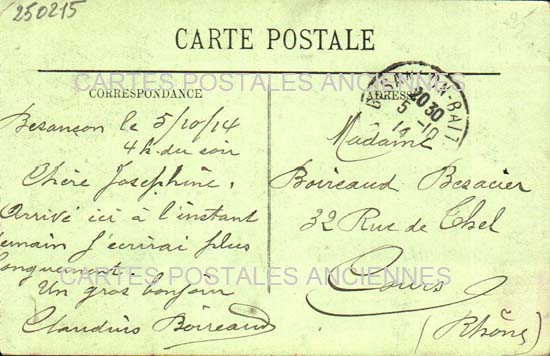 250215
CARTE POSTALE
CARTES POSTALES ANCIENNES
CORRESPONDANCE
ADRESSE
20 30
5 -10
14
Besançon le 5/10/14
4h. du soir
Chère Josephine,
Arrivé ici à l'instant
demain j'écrirai plus
longuement.
Un gros bonjour
Claudius Boireaud
Madame
Boireaud Besacier
32 Rue de Thel
Cours
(Rhône)
CARTES POSTALES ANCIENNES